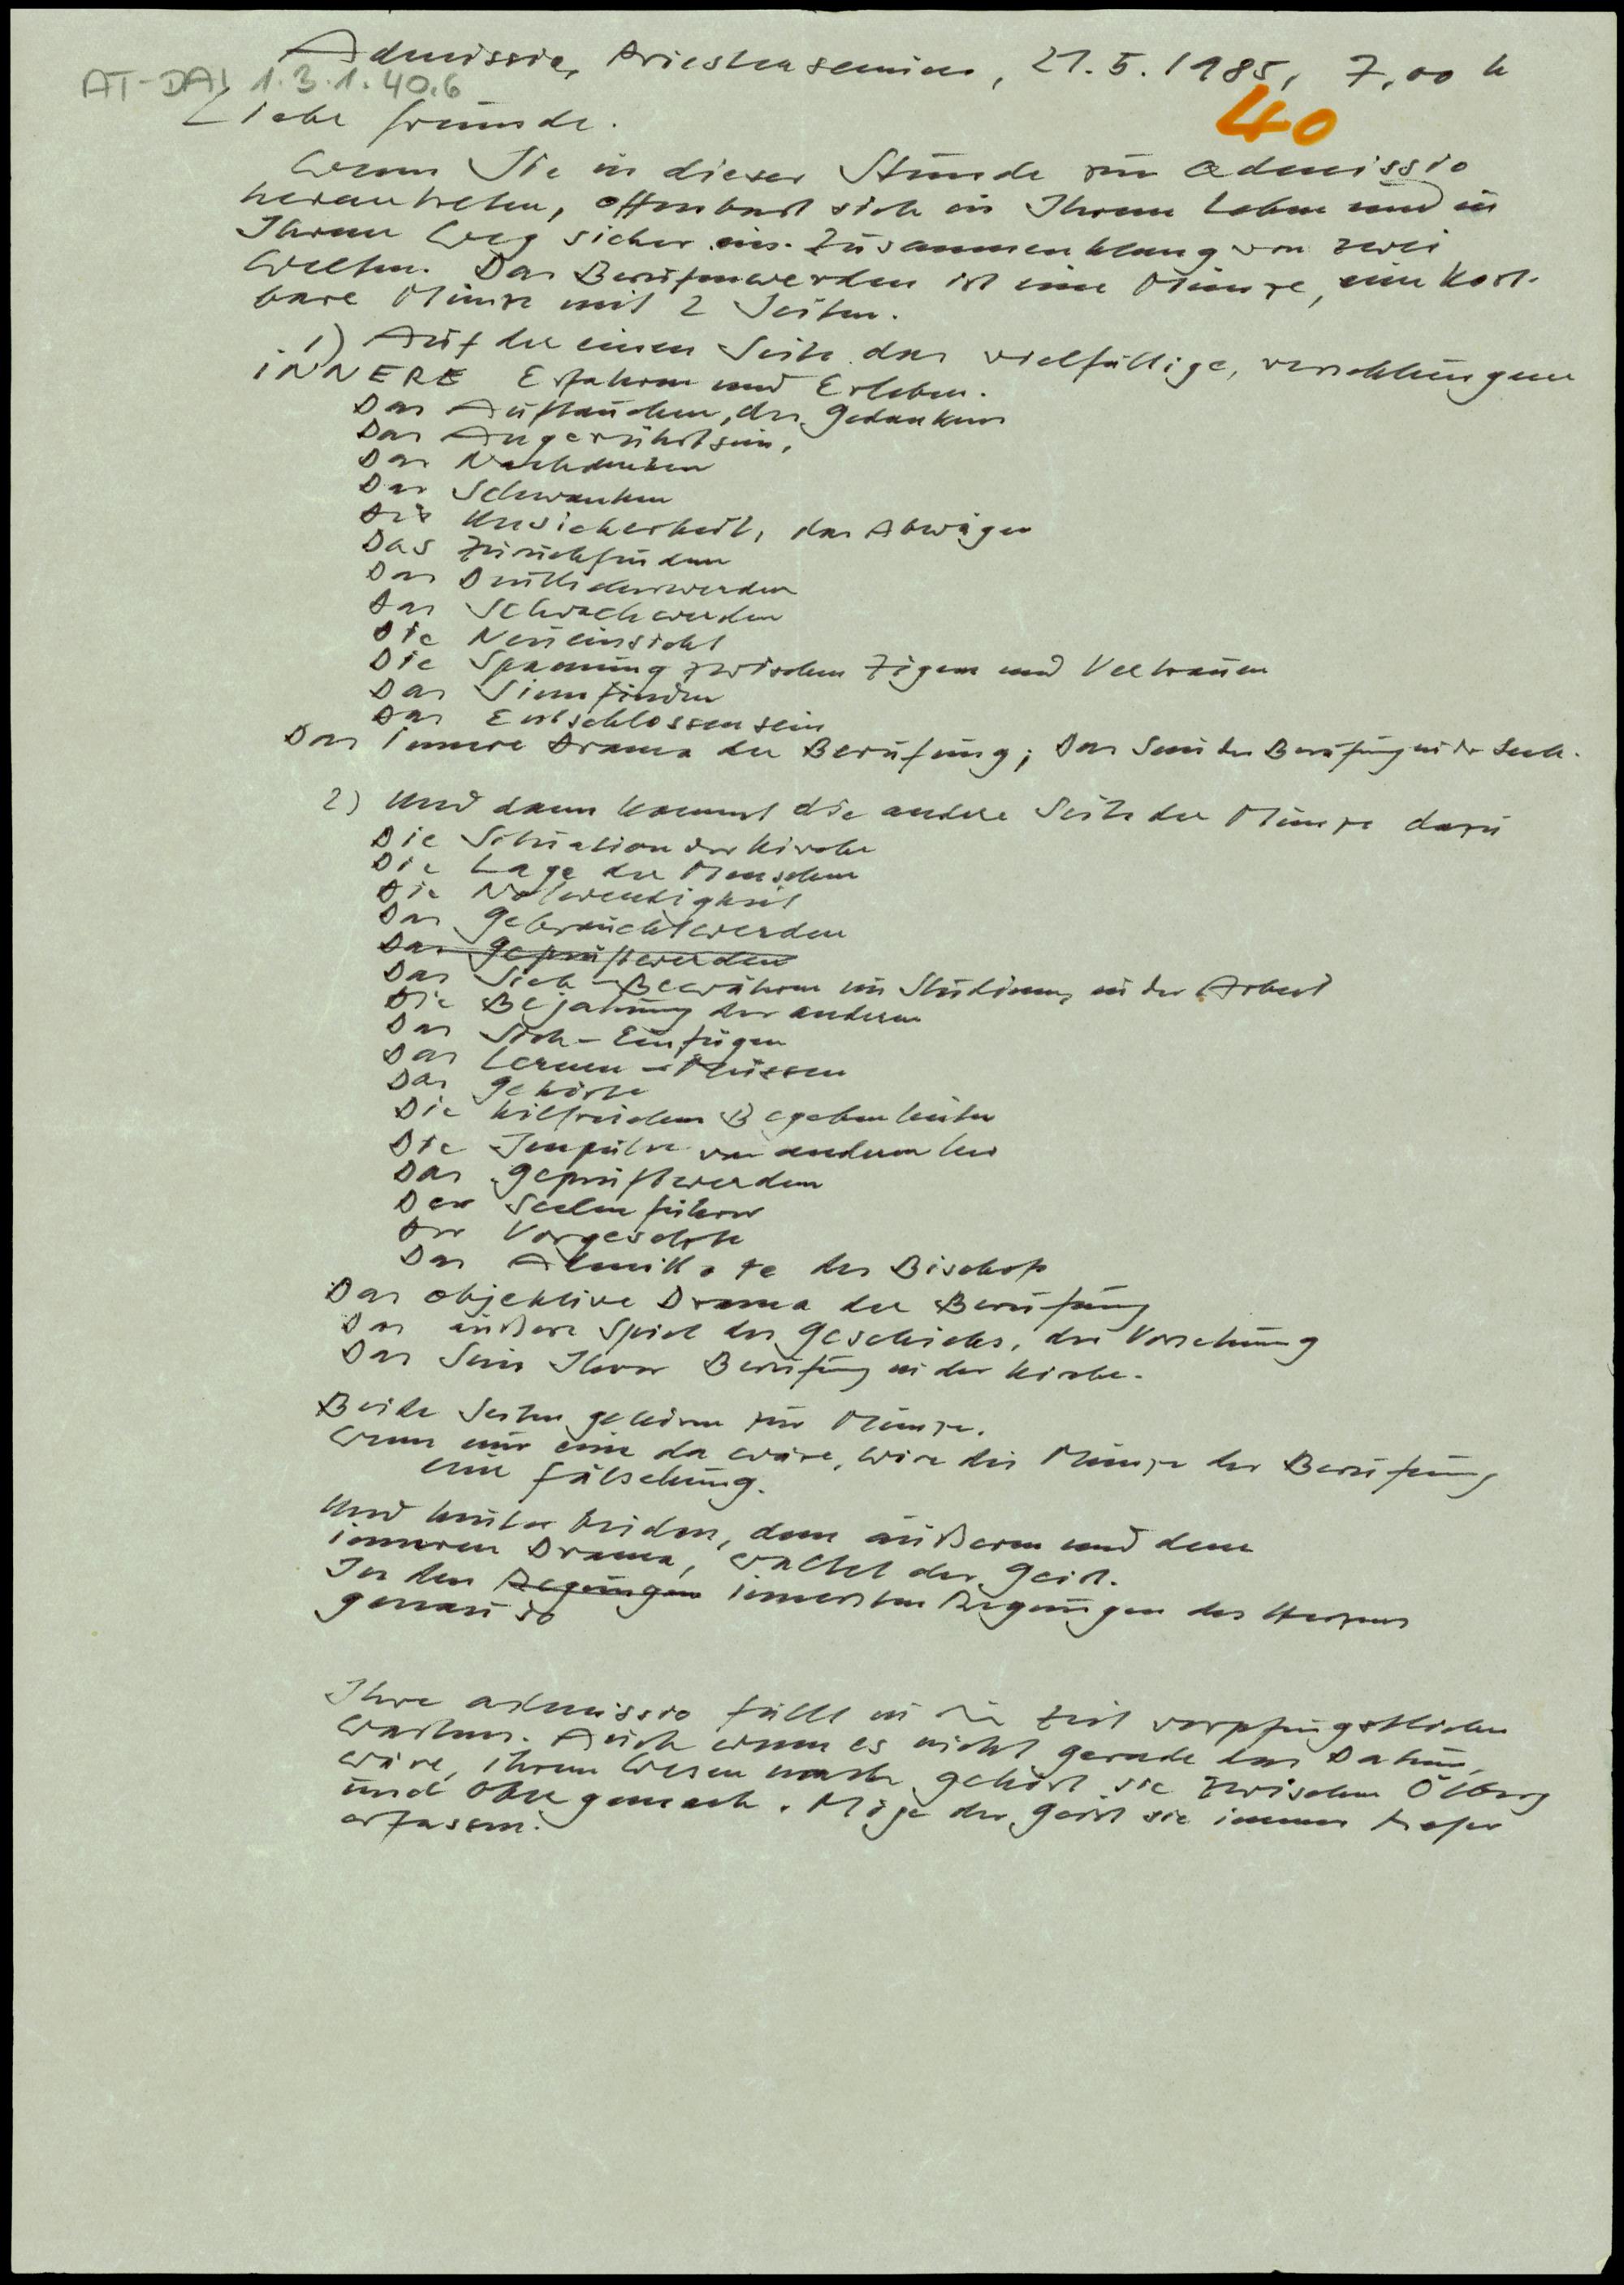 Admissio, Priesterseminar, 21.5.1985, 7,00 h
AT-DAI 1.3.1.40.6
40
Liebe Freunde.
Wenn Sie in dieser Stunde zur Admissio
herantreten, offenbart sich in Ihrem Leben und in
Ihrem Weg sicher ein Zusammenklang von zwei
Welten. Das Berufenwerden ist eine Münze, eine kost-
bare Münze mit 2 Seiten.
1) Auf der einen Seite das vielfältige, verschlungene
INNERE Erfahren und Erleben.
Das Auftauchen des Gedankens
Das Angerührtsein,
Das Nachdenken
Das Schwanken
Die Unsicherheit, das Abwägen
Das Zurückfinden
Das Deutlicherwerden
Das Schwachwerden
Die Neueinsicht
Die Spannung zwischen Zögern und Vertrauen
Das Sinnfinden
Das Entschlossensein
Das innere Drama der Berufung; Das Sein der Berufung in der Seele.
2) Und dann kommt die andere Seite der Münze dazu
Die Situation der Kirche
Die Lage der Menschen
Die Notwendigkeit
Das Gebrauchtwerden
Das Geprüftwerden
Das Sich-Bewähren im Studium, in der Arbeit
Die Bejahung der anderen
Das Sich-Einfügen
Das Lernen-Müssen
Das Gehörte
Die hilfreichen Begebenheiten
Die Impulse von anderen her
Das Geprüftwerden
Der Seelenführer
Der Vorgesetzte
Das Admitto te des Bischofs
Das objektive Drama der Berufung
Das äußere Spiel des Geschickes, der Vorsehung
Das Sein Ihrer Berufung in der Kirche.
Beide Seiten gehören zur Münze.
Wenn nur eine da wäre, wäre die Münze der Berufung
eine Fälschung.
Und hinter beiden, dem äußeren und dem
inneren Drama, waltet der Geist.
In den Regungen innersten Regungen des Herzens
genau so
Ihre Admissio fällt in die Zeit vorpfingstlichen
Wartens. Auch wenn es nicht gerade das Datum
wäre, ihrem Wesen nach gehört sie zwischen Ölberg
und Obergemach. Möge der Geist sie immer tiefer
erfassen.